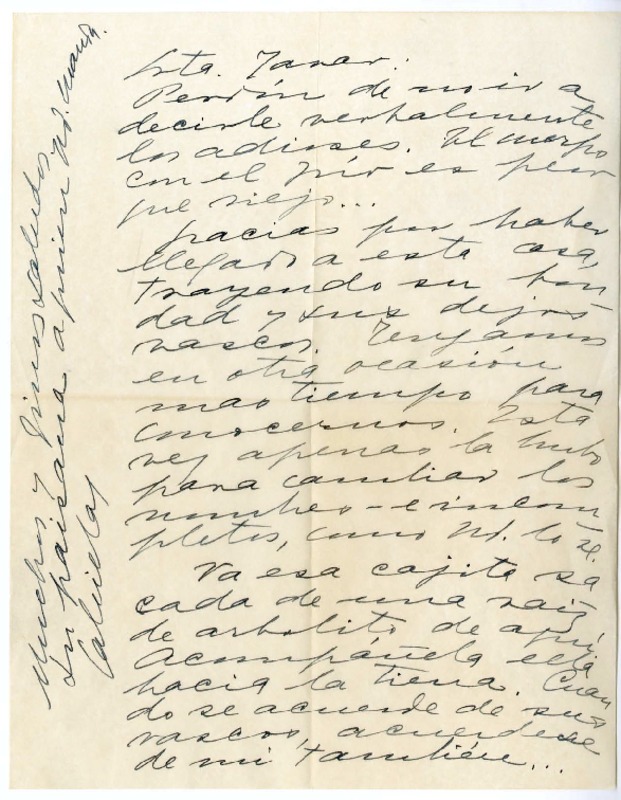 Srta. Tovar:
Perdón de no ir a
decirle verbalmente
los adioses. El cuerpo
con el frío es peor
que viejo...
gracias por haber
llegado a esta casa,
trayendo su bon
dad y sus dejos
vascos. Tengamos
en otra ocasión
mas tiempo para
conocernos. Esta
vez apenas la hubo
para cambiar los
nombres - e incom
pletos, como Ud. lo ze.
Va esa cajita sa
cada de una raíz
de arbolito de aquí.
Acompáñela ella
hacia la tierra. Cuan
do se acuerde de sus
vascos, acuérdese
de mi también...
Muchos y finos saludos
su paisana a quien Ud. manda.
Gabriela